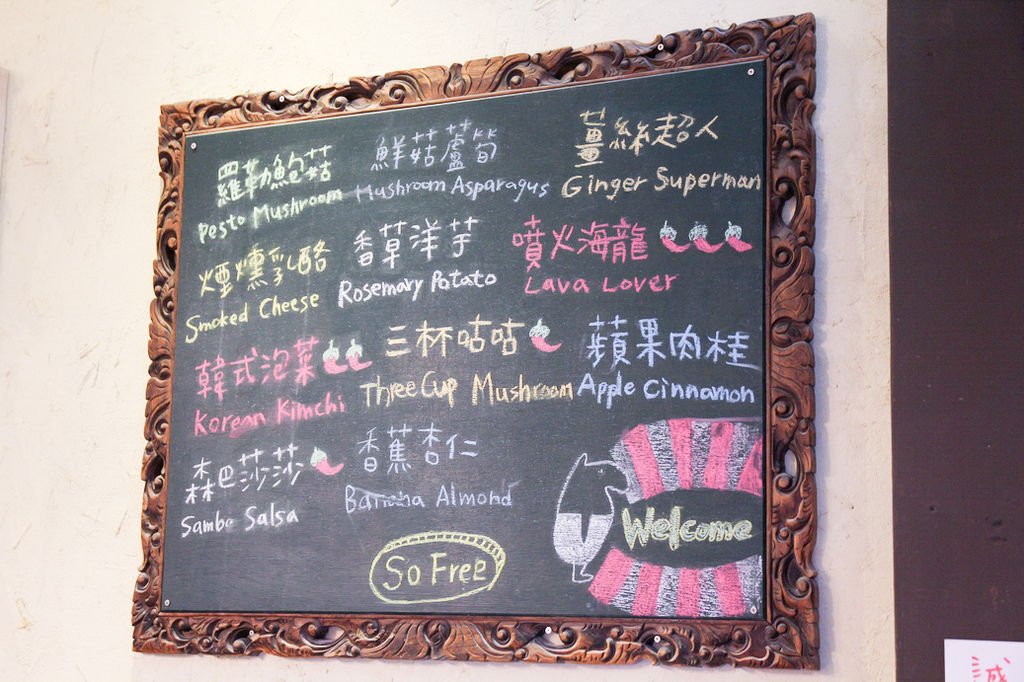 羅勒鮑菇
Pesto Mushroom
鮮菇蘆筍
Mushroom Asparagus
薑絲超人
Ginger Superman
煙燻乳酪
Smoked Cheese
香草洋芋
Rosemary Potato
噴火海龍
Lava Lover
韓式泡菜
Korean Kimchi
三杯咕咕
Three Cup Mushroom
蘋果肉桂
Apple Cinnamon
森巴莎莎
Samba Salsa
香蕉杏仁
Banana Almond
So Free
Welcome
誠